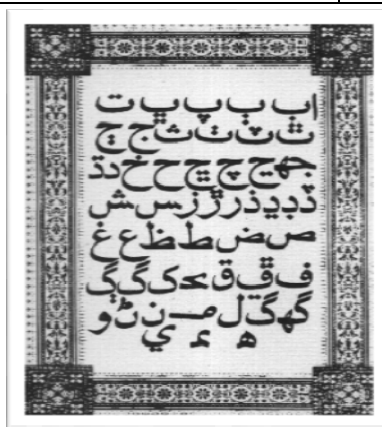 ا ب ٻ پ ڀ ت
ٿ ٽ ٺ ث ج ڄ
جھ ڃ چ ڇ ح خ د ڌ
ڏ ڊ ڍ ذ ر ڙ ز س ش
ص ض ط ظ ع غ
ف ڦ ق ڪ ک گ ڳ
گھ ڱ ل م ن ڻ و
ه ء ي